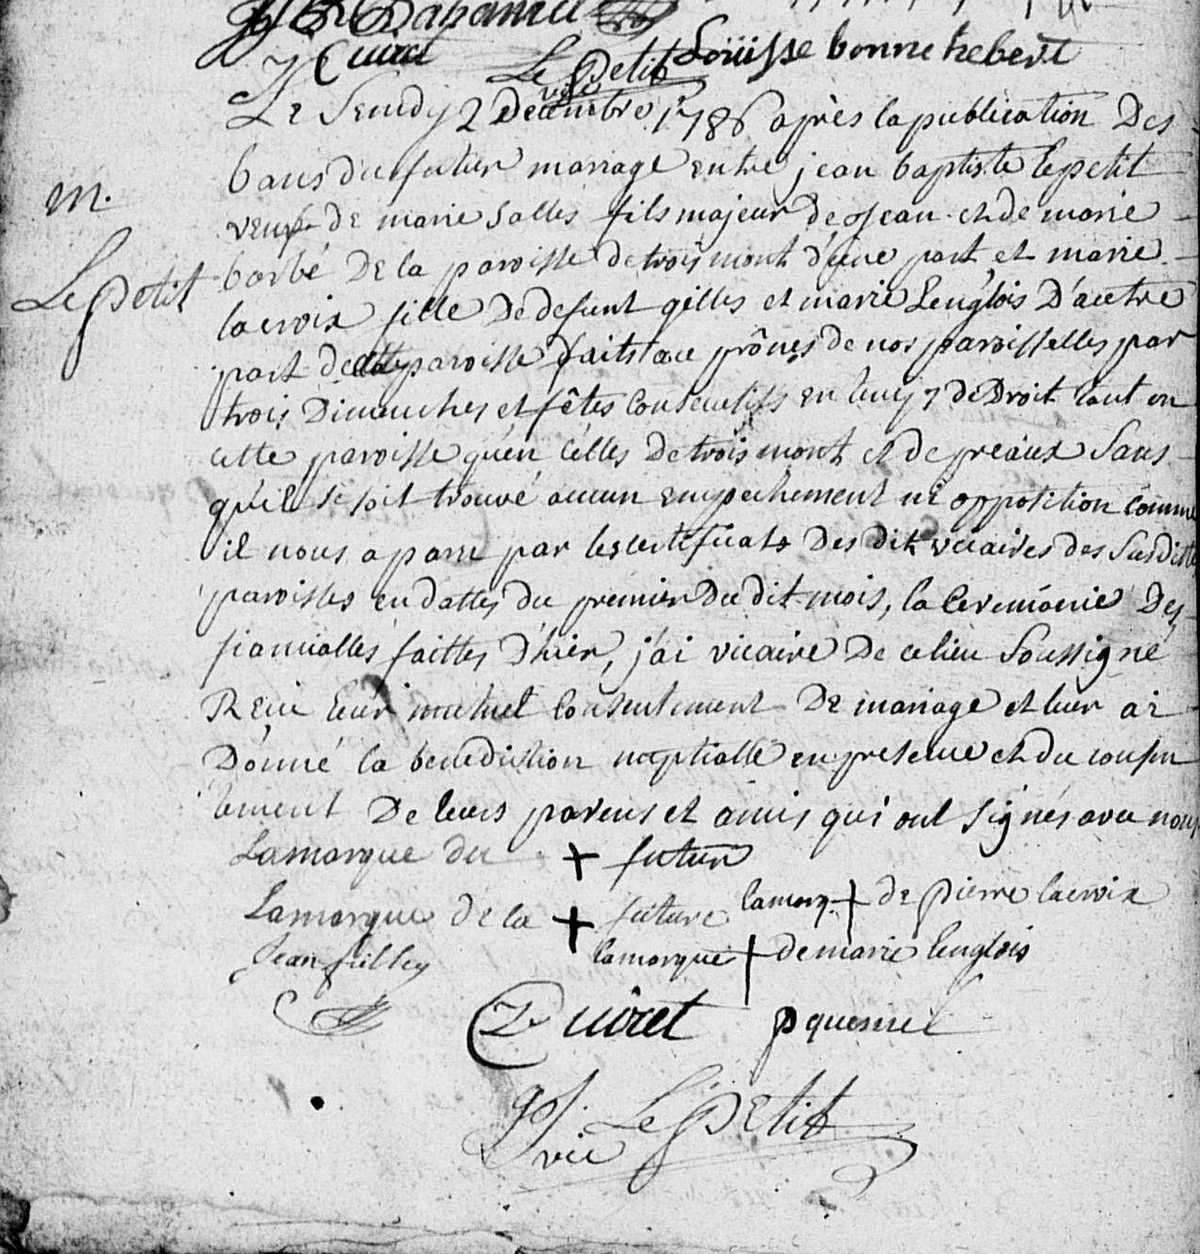 Duhamel
Cuiret Le Petit Loüisse bonne hebert
vic
Le Jeudy 2 decembre 1786 après la publication Des
bans du futur mariage entre jean baptiste lepetit
m.
veuf de marie Salles fils majeur de Jean et de marie
Le Petit
barbé De la paroisse de trois mont d'une part, et marie
lacroix fille De defunt gilles et marie Lenglois D'autre
part de cette paroisse faits au prônes de nos paroisselles par
trois Dimanches et fêtes consecutifs en de Droit tant en
cette paroisse qu'en celles De trois mont et de preaux Sans
qu'il se soit trouvé aucun empechement ni opposition comme
il nous a paru par les certificats Des dit vicaires des Susditte
paroisses en dattes du premier Du dit mois, la Ceremonie Des
fiancialles faittes D'hier, j'ai vicaire De ce lieu Soussigné
Recu leur mutuel consentement De mariage et leur ai
Donné la benediction nuptialle en presence et du consen
tement De leurs parens et amis qui ont signés avec nous
Lamarque du + futur
Lamarque de la + future lamarq + de pierre lacroix
Jean lamarque + de marie lenglois
Cuiret p quesnel
Le Petit
vic